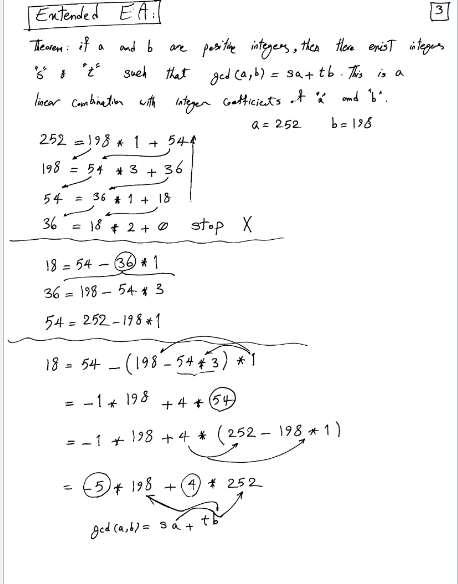 Extended EA:
3
Theorem: if a and b are positive integers, then there exist integers
"s" & "t" such that gcd(a,b) = sa + tb. This is a
linear combination with integer coefficients of "a" and "b".
a = 252 b = 198
252 = 198 * 1 + 54
198 = 54 * 3 + 36
54 = 36 * 1 + 18
36 = 18 * 2 + 0 stop X
18 = 54 - 36 * 1
36 = 198 - 54 * 3
54 = 252 - 198 * 1
18 = 54 - (198 - 54 * 3) * 1
= -1 * 198 + 4 * 54
= -1 * 198 + 4 * (252 - 198 * 1)
= -5 * 198 + 4 * 252
gcd(a,b) = sa + tb